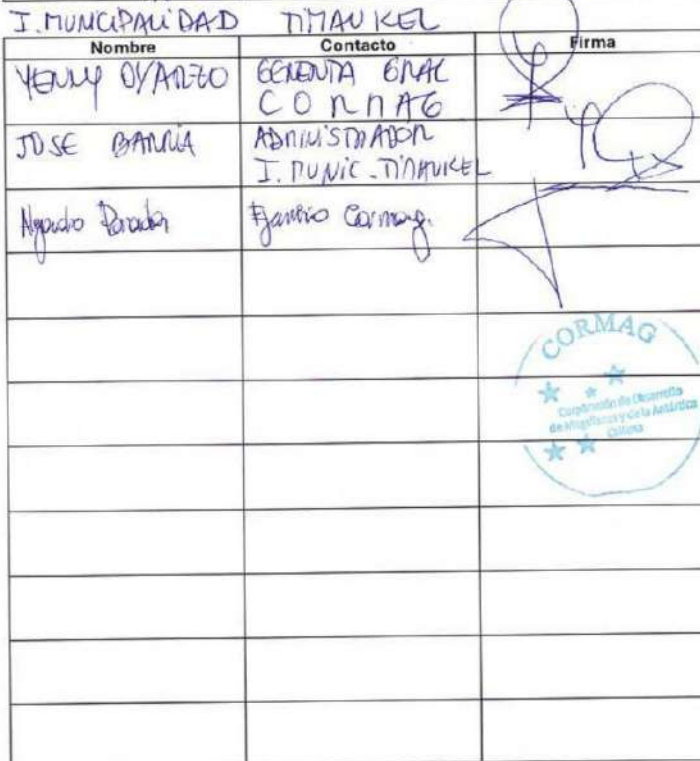 I. MUNICIPALIDAD TIMAUKEL
Nombre Contacto Firma
YENNY OYARZO GERENTA GRAL
CORMAG
JOSE BARRIA ADMINISTRADOR
I. MUNIC. TIMAUKEL
Alejandro Cormag.
CORMAG
Corporación de Desarrollo
de Magallanes y de la Antártica
Chilena